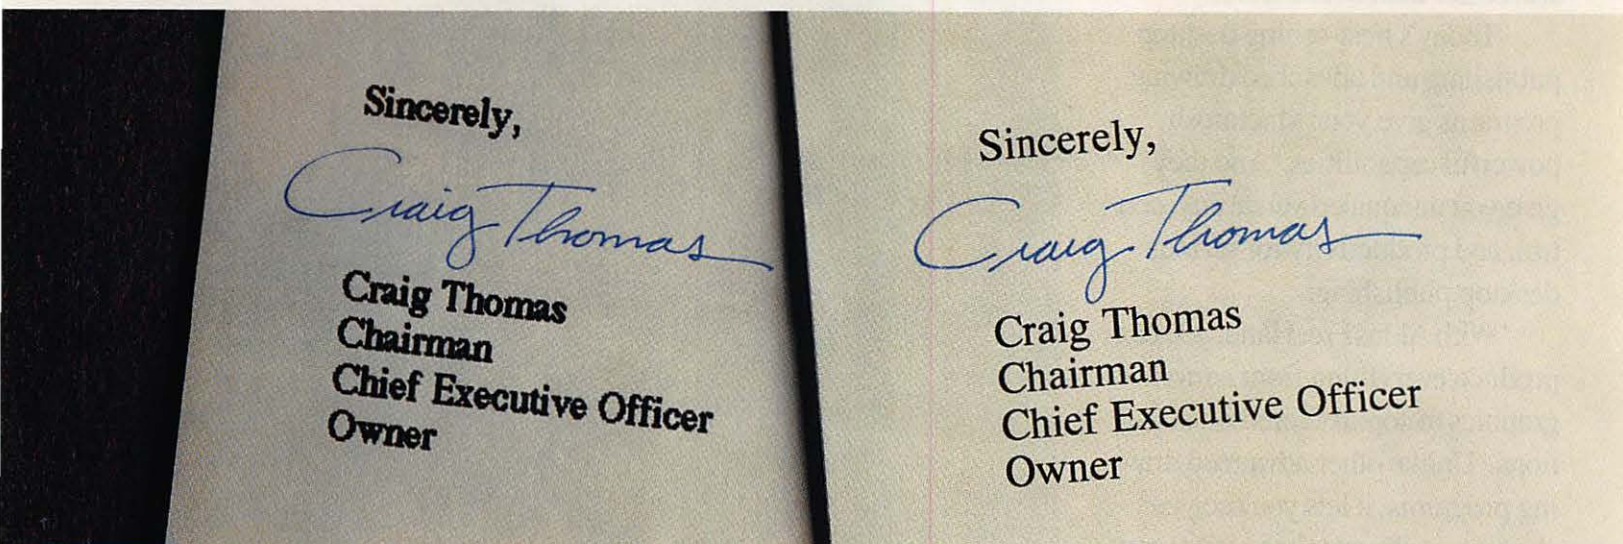 Sincerely,
Craig Thomas
Craig Thomas
Chairman
Chief Executive Officer
Owner
Sincerely,
Craig Thomas
Craig Thomas
Chairman
Chief Executive Officer
Owner